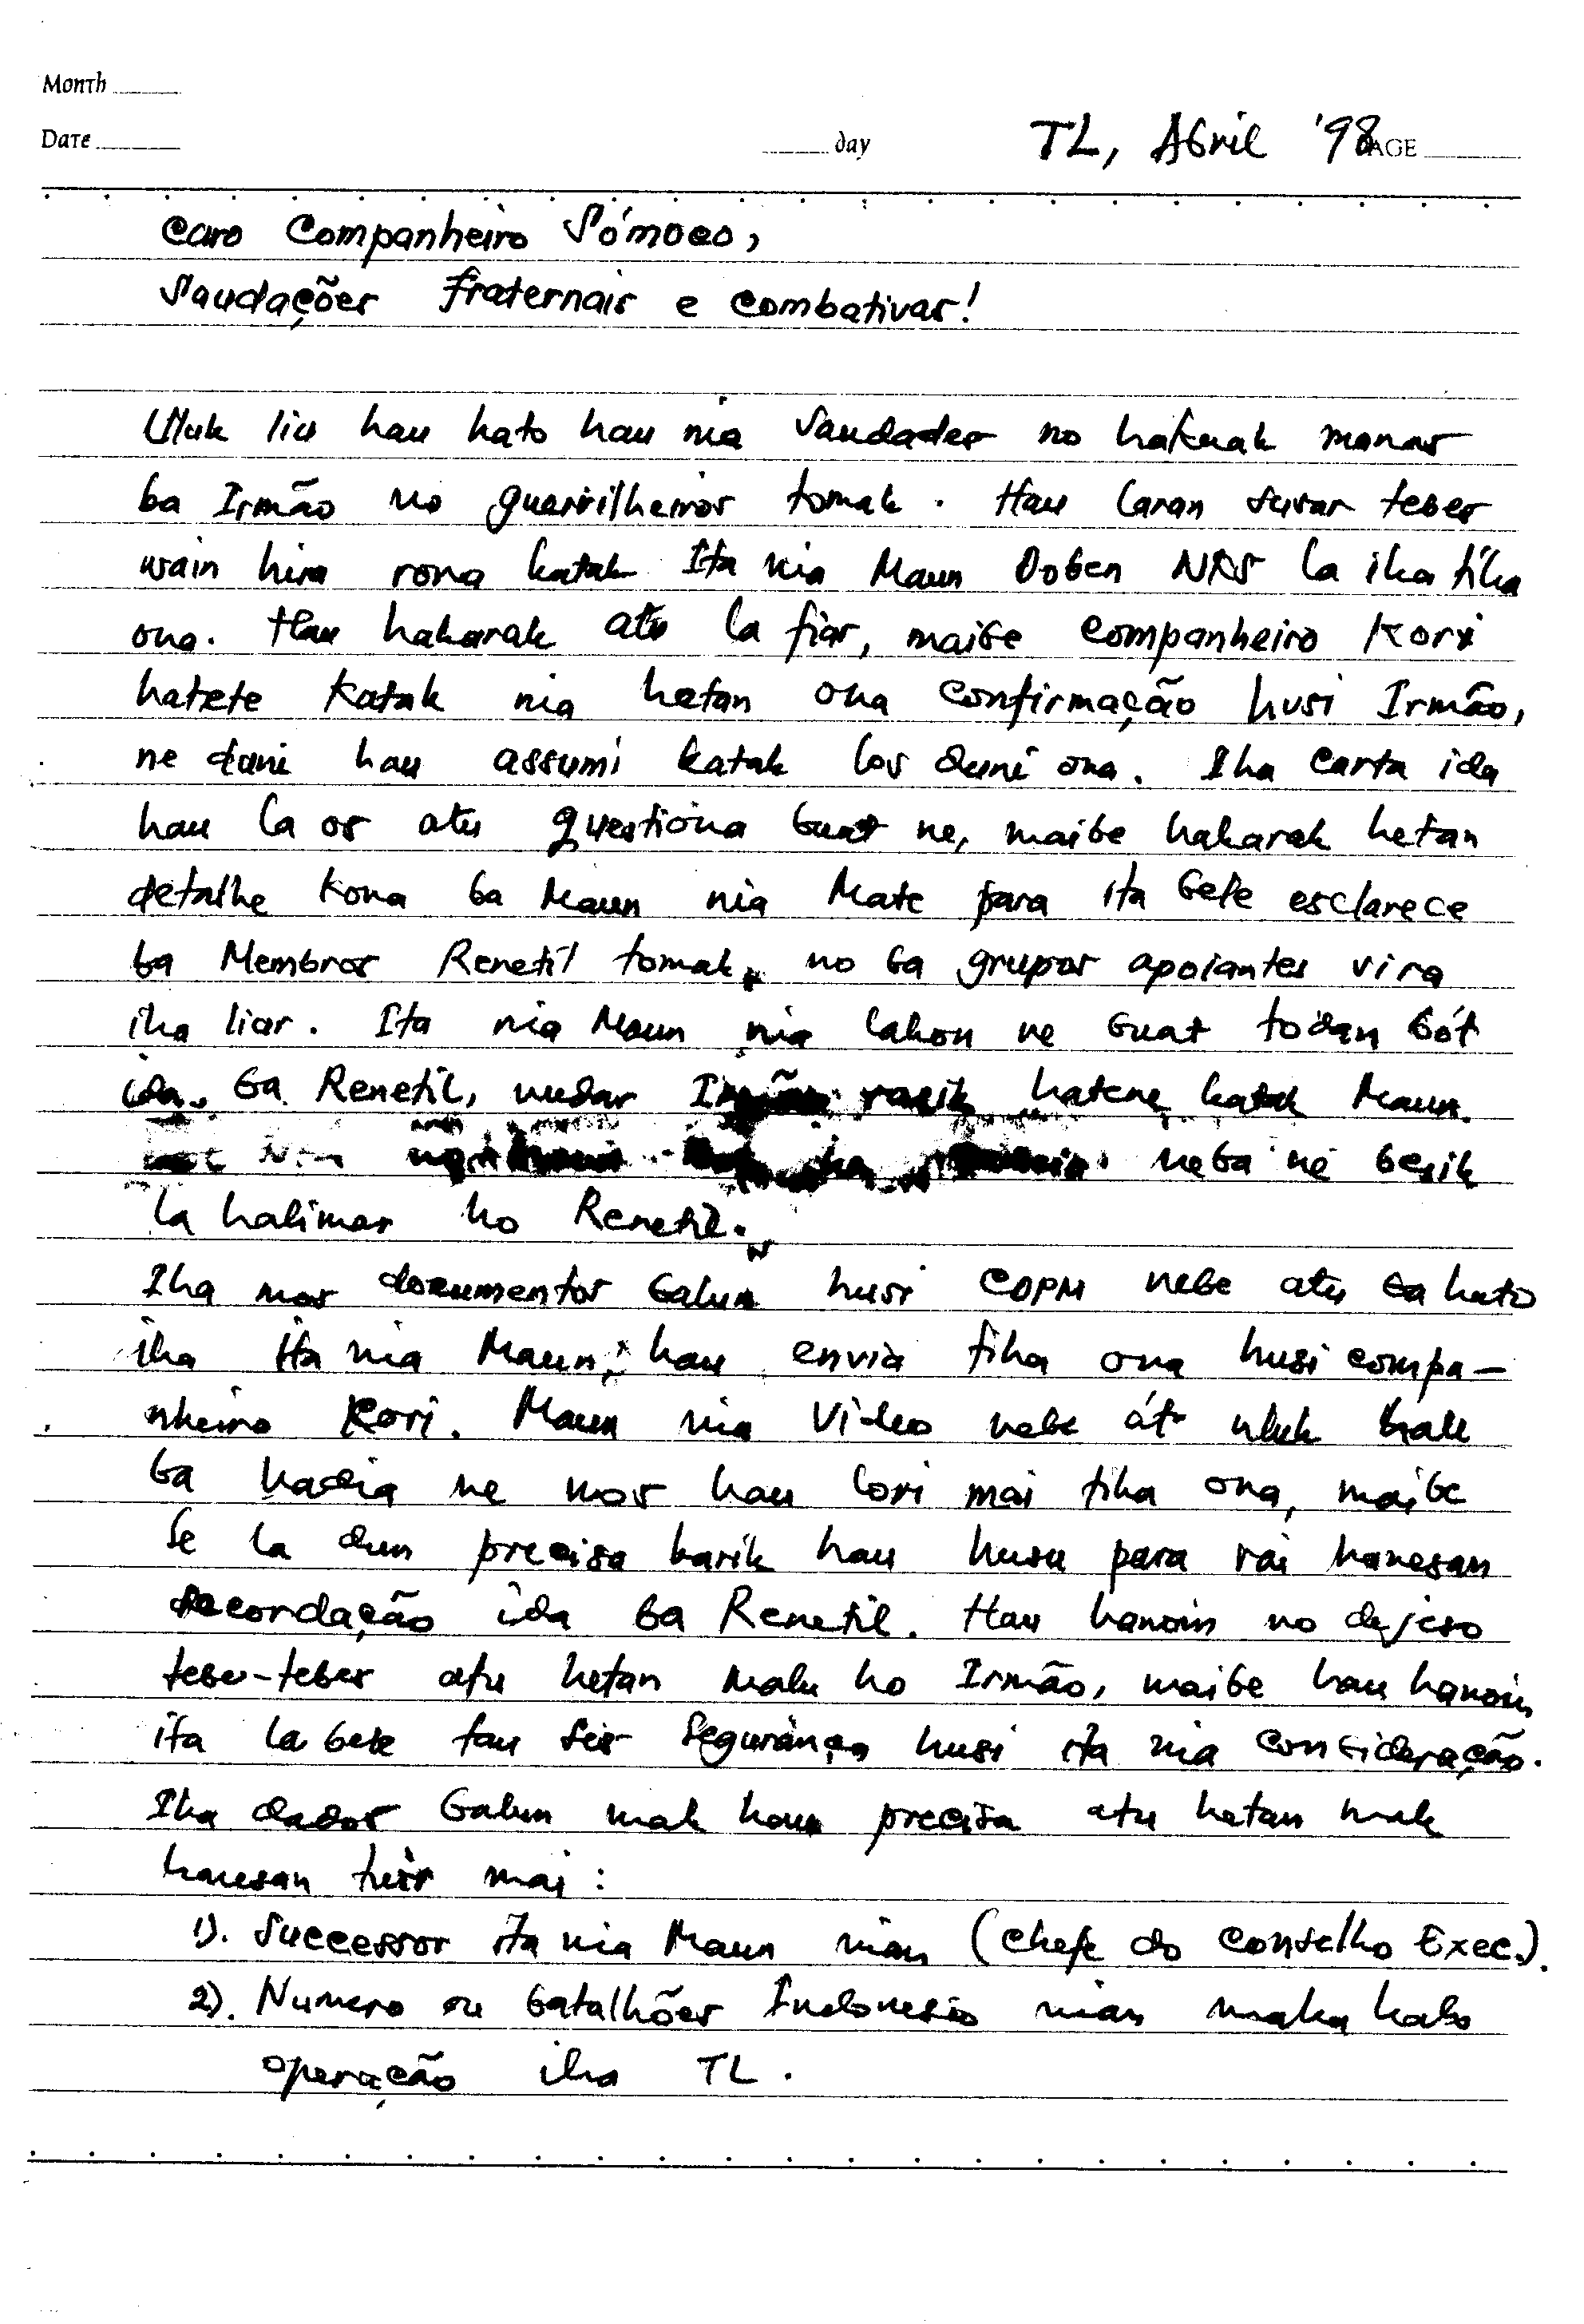 Month
Date
day
TL, Abril '98
PAGE
Caro Companheiro Sómoco,
Saudações fraternais e combativas!
Uluk liu hau hato hau nia saudades no hakuak manas
ba Irmão no guerrilheiros tomak. Hau laran susar tebes
wain hira rona katak Ita nia Maun Doben NKS la iha tiha
ona. Hau hakarak atu la fiar, maibe companheiro Kori
hatete katak nia hetan ona confirmação husi Irmão,
ne duni hau assumi katak los duni ona. Iha carta ida
hau la os atu questiona buat ne, maibe hakarak hetan
detalhe kona ba Maun nia Mate para ita bele esclarece
ba Membros Renetil tomak, no ba grupos apoiantes sira
iha liar. Ita nia Maun nia lakon ne buat todan bót
ida. Ba Renetil, nudar Irmão rasik hatene katak Maun
neba ne besik
la halimar ho Renetil.
Iha mos documentos balun husi CDPM nebe atu ba hato
iha ita nia Maun, hau envia tiha ona husi compa-
nheiro Kori. Maun nia Video nebe át uluk
ba hadia ne mos hau lori mai tiha ona, maibe
se la dun precisa karik hau husu para rai hanesan
recordação ida ba Renetil. Hau hanoin no dejeso
tebe-tebes atu hetan malu ho Irmão, maibe hau hanoin
ita la bele tau ses segurança husi ita nia consideração.
Iha dados balun mak hau precisa atu hetan mak
hanesan tuir mai:
1). Successor ita nia Maun nian (Chefe do Conselho Exec.).
2). Numero ou batalhões Indonesio nian maka halo
operação iha TL.